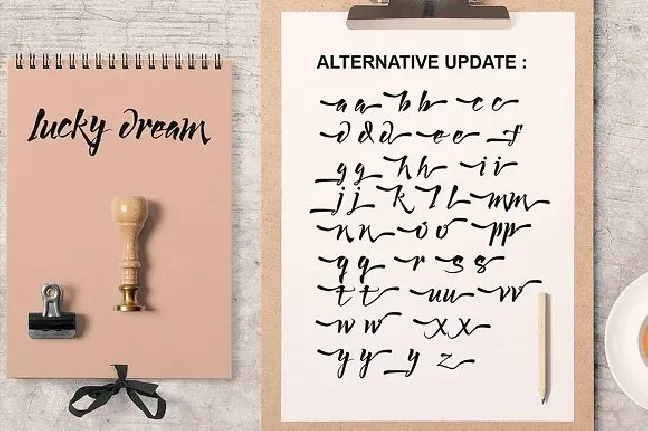 lucky dream
ALTERNATIVE UPDATE :
a a b b c c
d d d e e f
g g h h i i
j j k l l m m
n n o o p p
q q r s s
t t u u v v
w w x x
y y y z